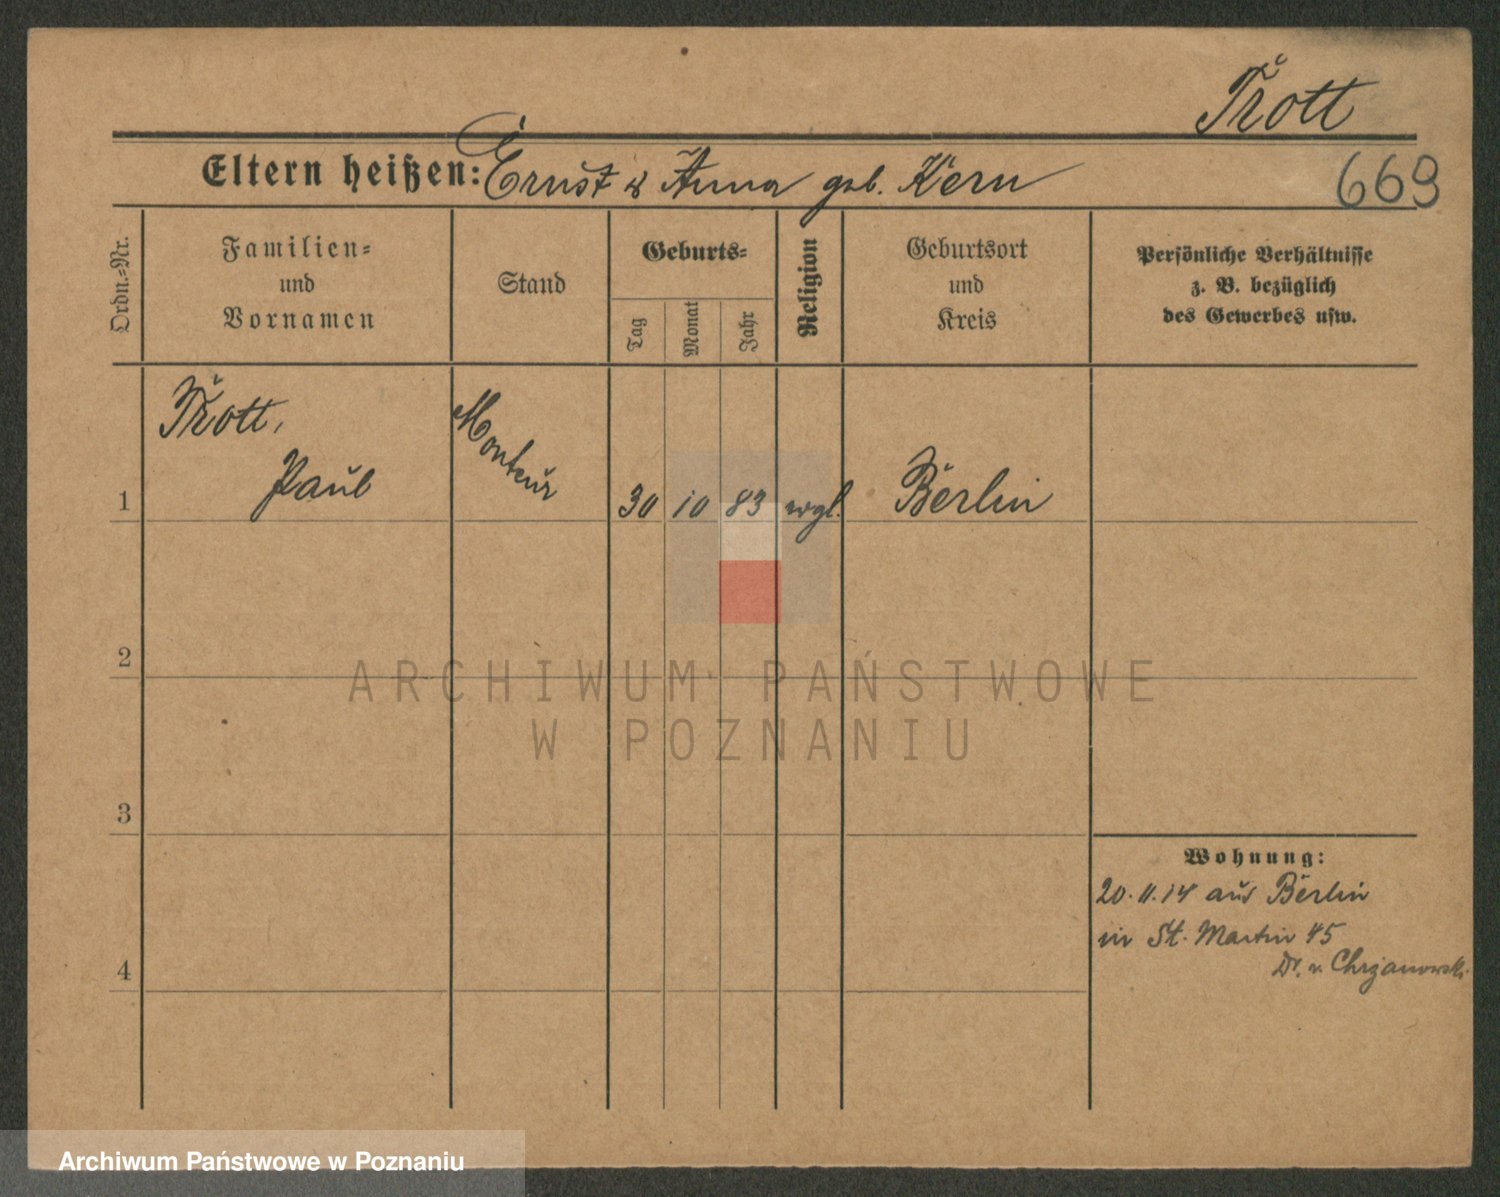 Trott
Eltern heißen: Ernst & Anna geb. Kern
669
Ordn.-Nr.
Familien-
und
Vornamen
Stand
Geburts-
Tag
Monat
Jahr
Religion
Geburtsort
und
Kreis
Persönliche Verhältnisse
z. B. bezüglich
des Gewerbes usw.
Trott,
1 Paul Monteur 30 10 83 evgl. Berlin
2
ARCHIWUM PAŃSTWOWE
W POZNANIU
3
Wohnung:
20.11.14 aus Berlin
in St. Martin 45
Dr. v. Chrzanowski
4
Archiwum Państwowe w Poznaniu